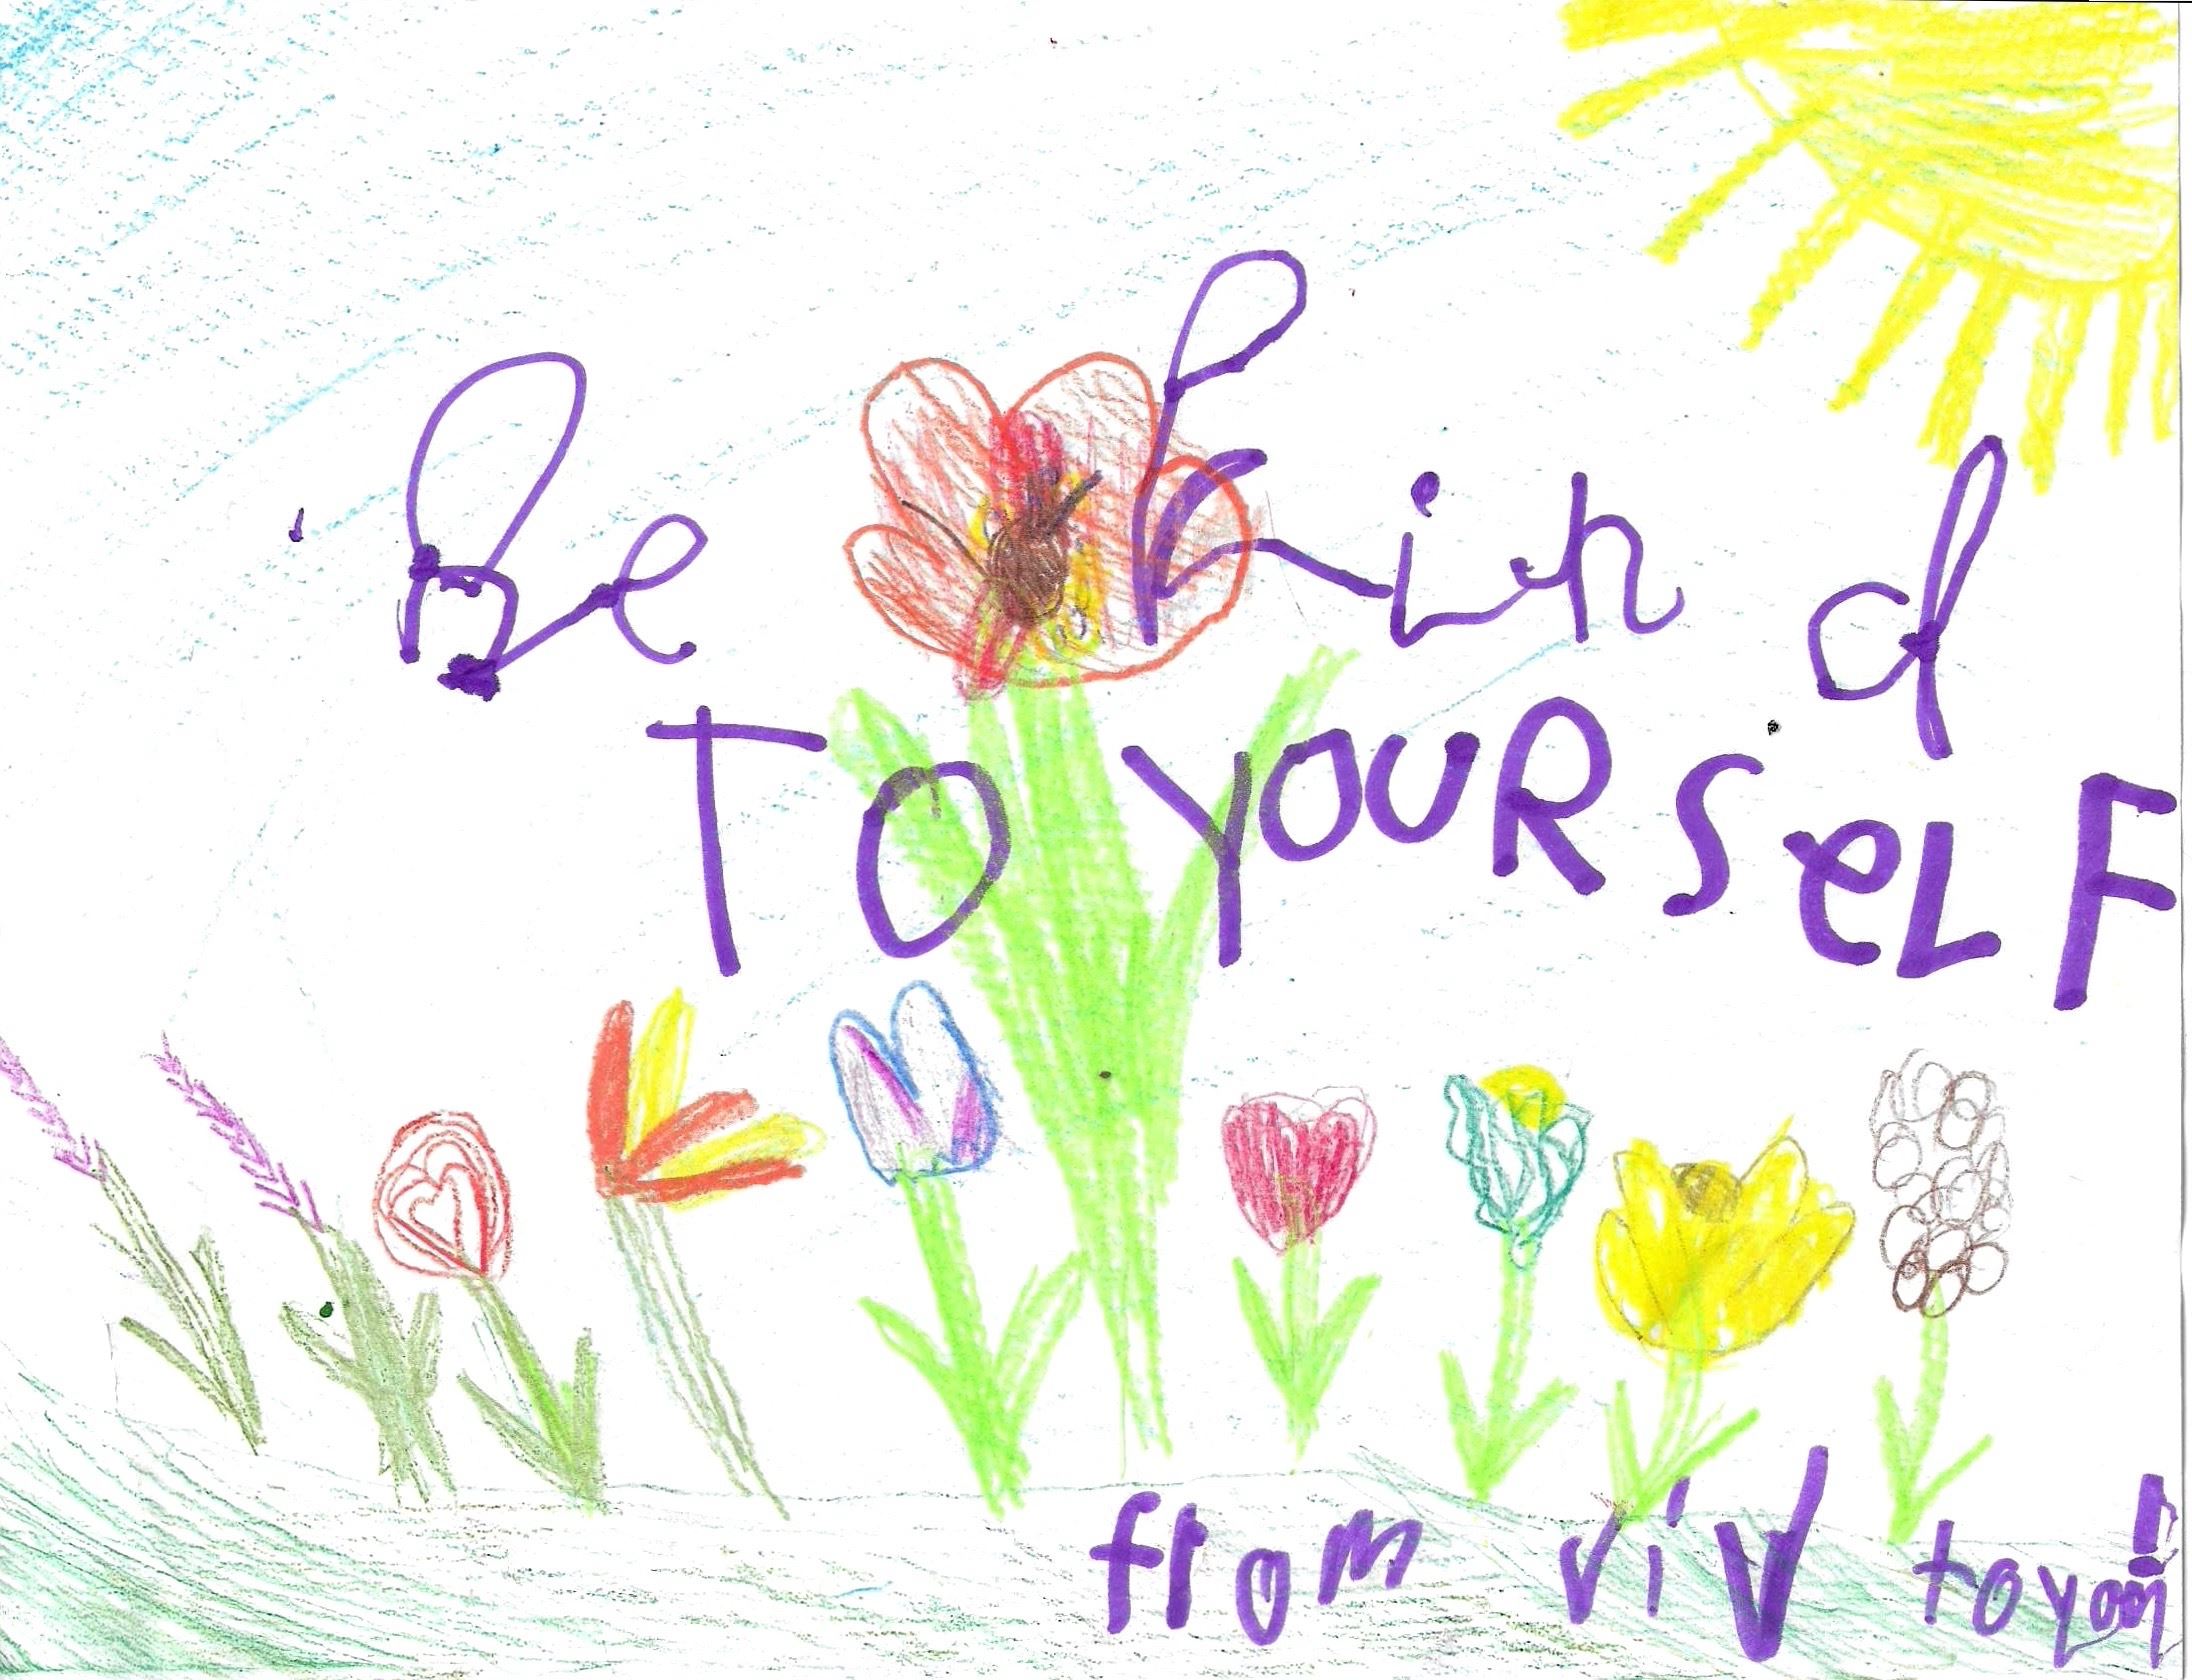 Be kind
TO YOURSeLF
from viv to you!